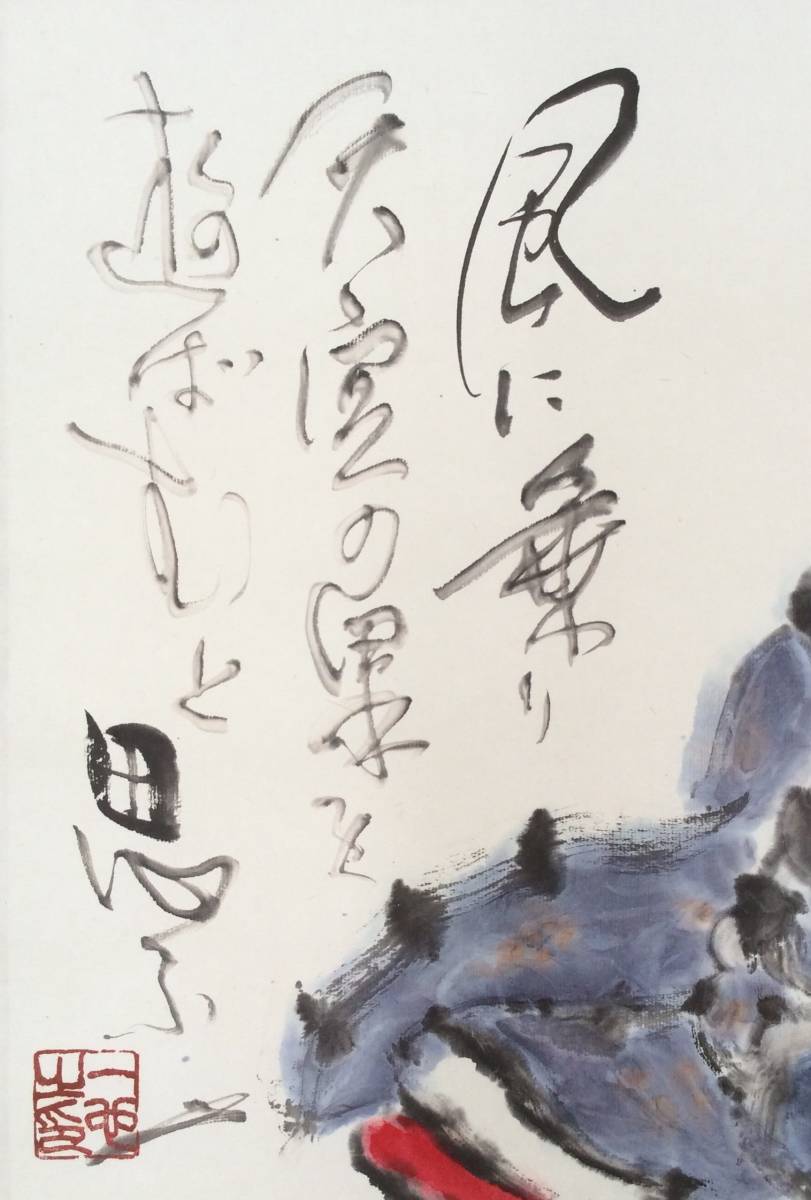 風に乗り
天空の果を
遊ばむと思ふ
一